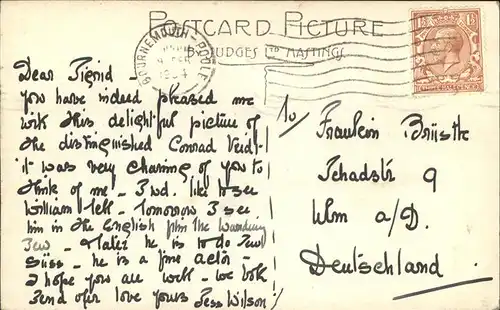 POSTCARD PICTURE
BY JUDGES LTD HASTINGS
BOURNEMOUTH - POOLE
1934
Dear Sigrid -
you have indeed pleased me
with this delightful picture of
the distinguished Conrad Veidt -
it was very charming of you to
think of me - I wd. like to see
William Tell - Tomorrow I see
him in the English film The Wandering
Jew - Later he is to do Jew
Süss - he is a fine actor -
I hope you are well - we both
send our love yours Jess Wilson
To/
Fraulein
9
Ulm a/D.
Deutschland